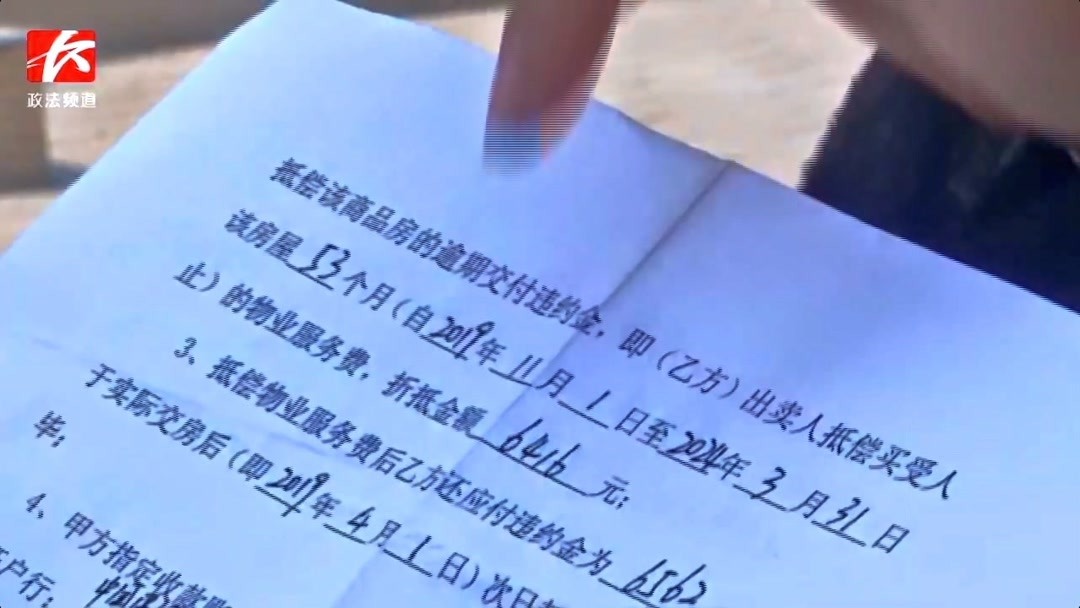 政法频道
抵偿该商品房的逾期交付违约金，即（乙方）出卖人抵偿买受人
该房屋53个月（自2019年11月1日至2024年3月31日
止）的物业服务费，折抵金额6416元；
3、抵偿物业服务费后乙方还应付违约金为6562
于实际交房后（即2019年4月1日）次日
毕；
4、甲方指定收款
户行：中国